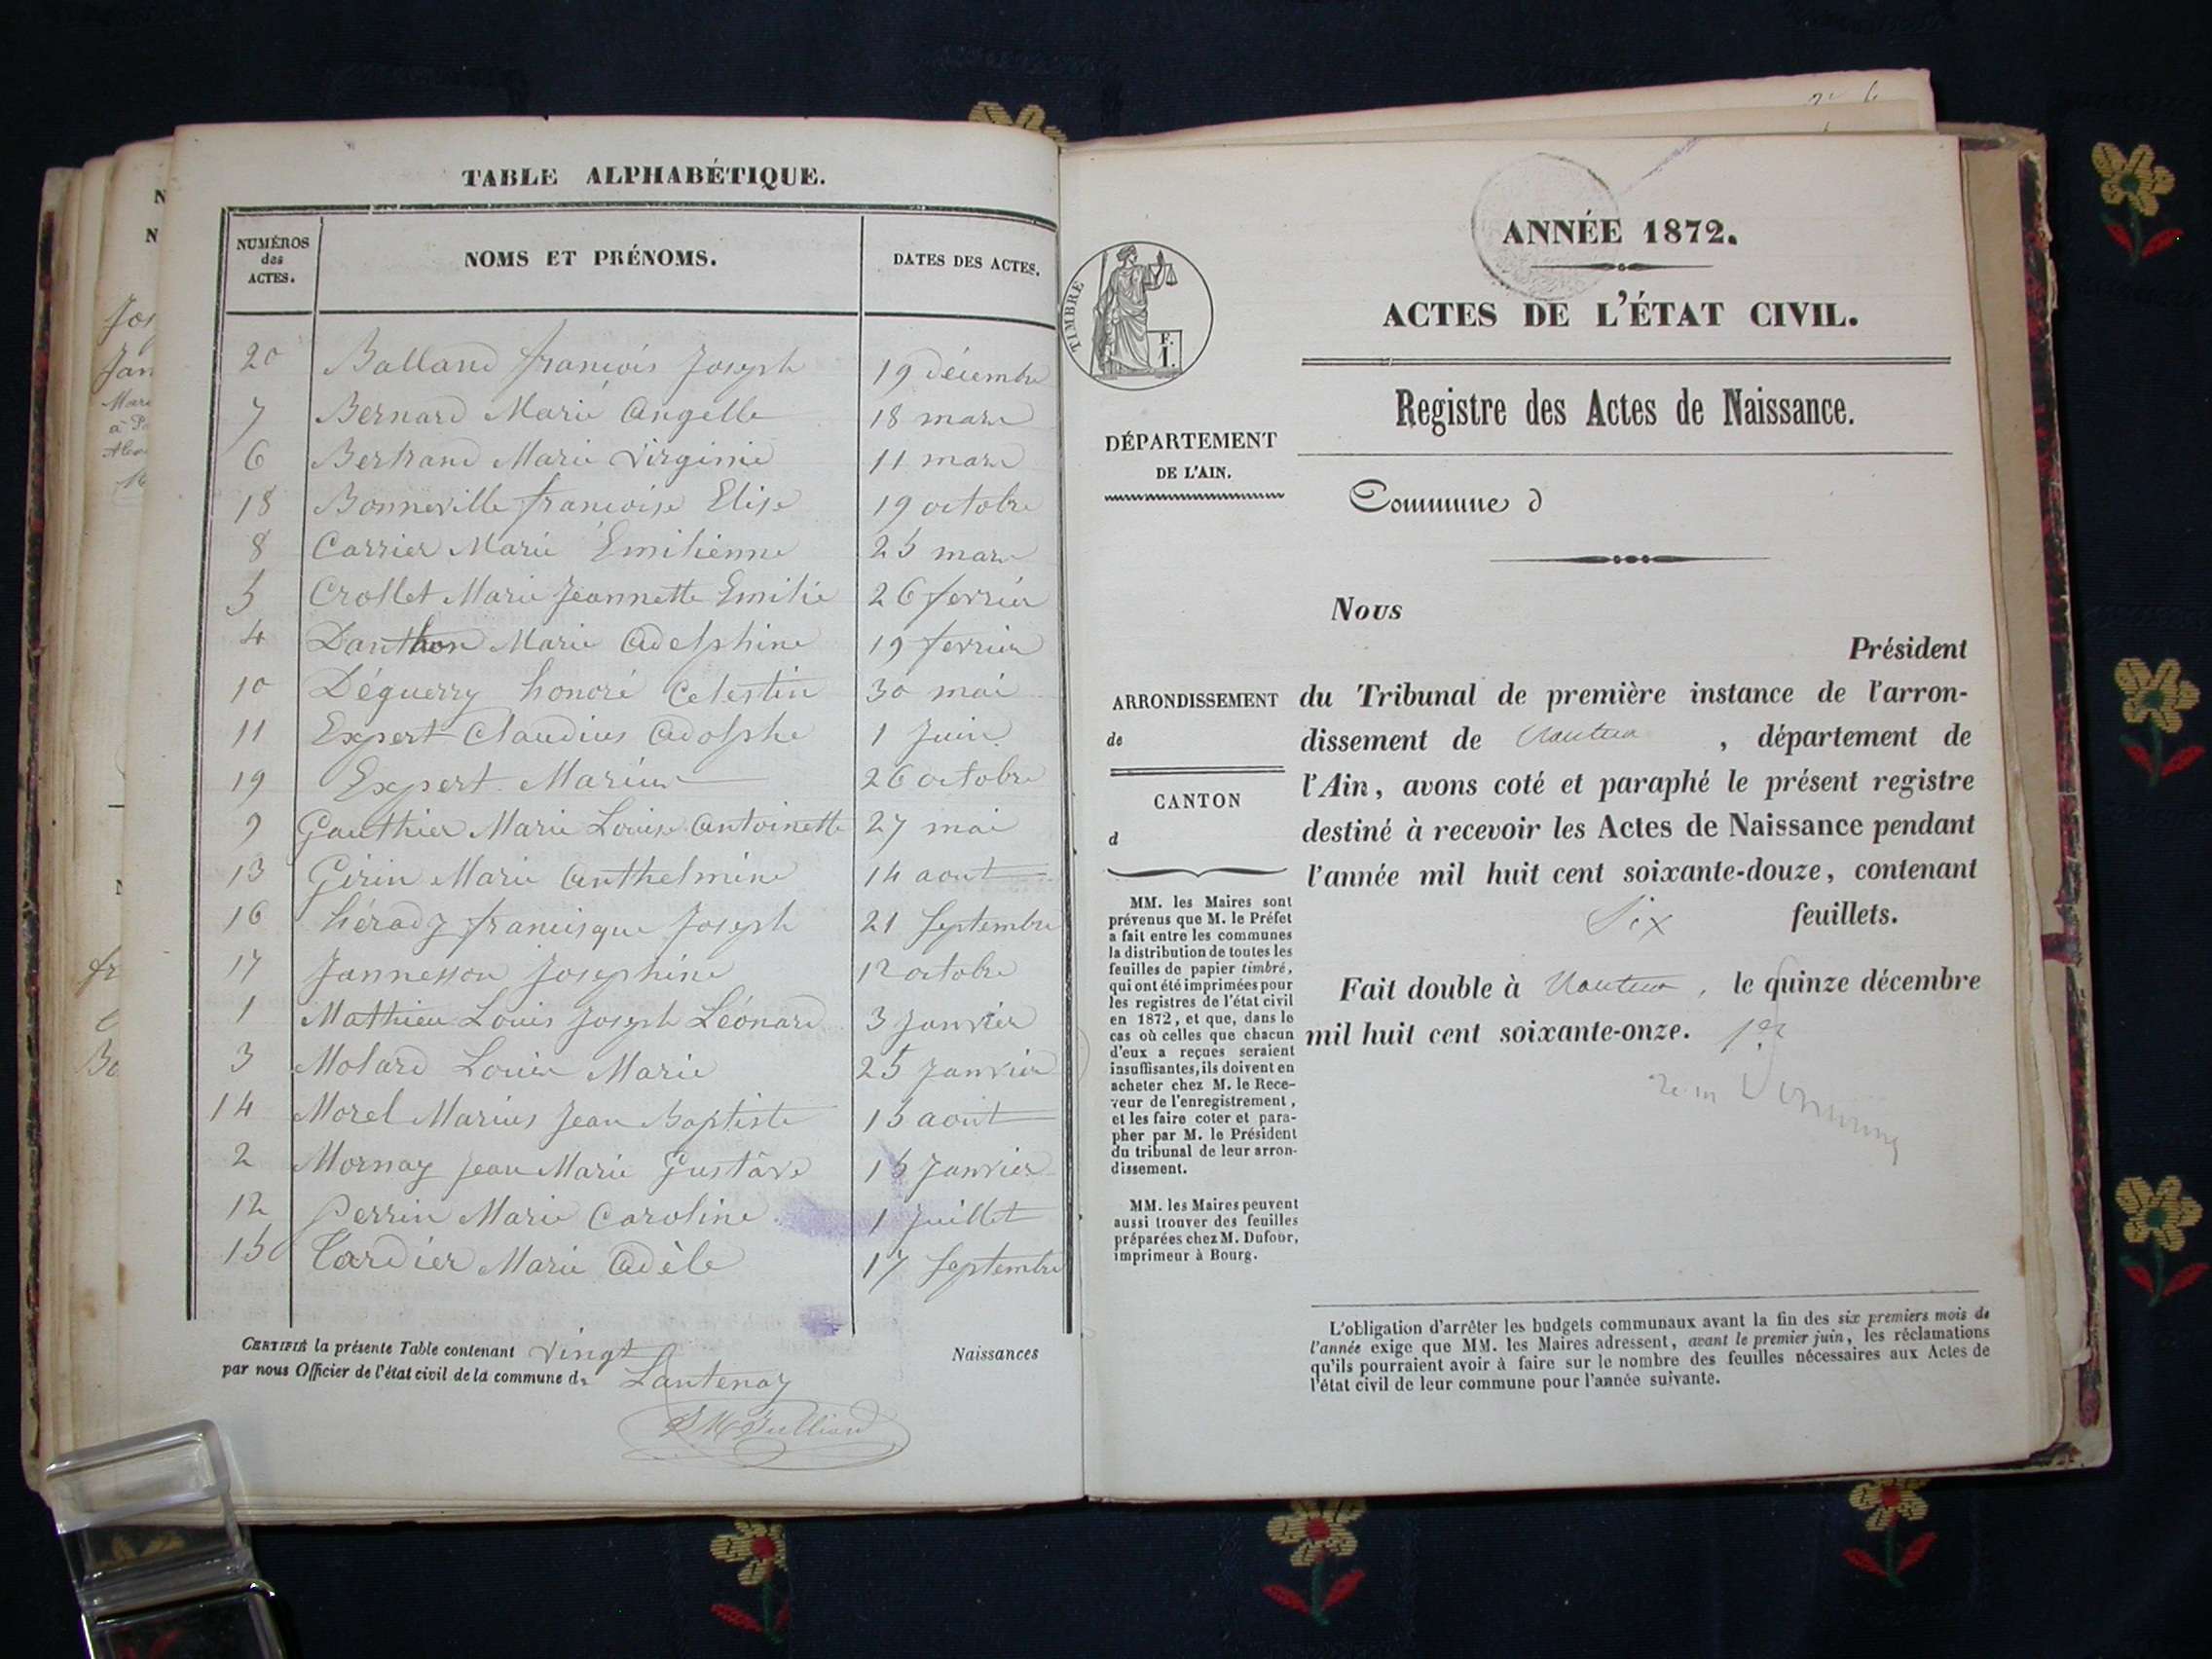 TABLE ALPHABÉTIQUE.
NUMÉROS des ACTES. NOMS ET PRÉNOMS. DATES DES ACTES.
20 Balland françois Joseph 19 décembre
7 Bernard Marie Angelle 18 mars
6 Bertrand Marie Virginie 11 mars
18 Bonneville françoise Elise 19 octobre
8 Carrier Marie Emilienne 25 mars
5 Crollet Marie Jeannette Emilie 26 ferrier
4 Danthon Marie Adelphine 19 ferrier
10 Déguerry honoré Celestin 30 mai
11 Expert Claudius Adolphe 1 Juin
19 Expert Marius 26 octobre
9 Gauthier Marie Louise Antoinette 27 mai
13 Girin Marie Anthelmine 14 aout
16 hérady francisque Joseph 21 Septembre
17 Jannesson Josephine 12 octobre
1 Mathieu Louis Joseph Léonard 3 Janvier
3 Molard Louis Marie 25 Janvier
14 Morel Marius Jean Baptiste 15 aout
2 Mornay Jean Marie Gustave 15 Janvier
12 Perrin Marie Caroline 1 Juillet
15 Tardier Marie Adèle 17 Septembre
CERTIFIÉ la présente Table contenant vingt Naissances
par nous Officier de l'état civil de la commune de Lantenay
ANNÉE 1872.
TIMBRE
F.
1.
ACTES DE L'ÉTAT CIVIL.
Registre des Actes de Naissance.
DÉPARTEMENT
DE L'AIN.
Commune d
Nous
Président
ARRONDISSEMENT
de
CANTON
d
du Tribunal de première instance de l'arron-
dissement de Nantua, département de
l'Ain, avons coté et paraphé le présent registre
destiné à recevoir les Actes de Naissance pendant
l'année mil huit cent soixante-douze, contenant
Six feuillets.
Fait double à Nantua, le quinze décembre
mil huit cent soixante-onze.
MM. les Maires sont
prévenus que M. le Préfet
a fait entre les communes
la distribution de toutes les
feuilles de papier timbré,
qui ont été imprimées pour
les registres de l'état civil
en 1872, et que, dans le
cas où celles que chacun
d'eux a reçues seraient
insuffisantes, ils doivent en
acheter chez M. le Rece-
veur de l'enregistrement,
et les faire coter et para-
pher par M. le Président
du tribunal de leur arron-
dissement.
MM. les Maires peuvent
aussi trouver des feuilles
préparées chez M. Dufour,
imprimeur à Bourg.
L'obligation d'arrêter les budgets communaux avant la fin des six premiers mois de
l'année exige que MM. les Maires adressent, avant le premier juin, les réclamations
qu'ils pourraient avoir à faire sur le nombre des feuilles nécessaires aux Actes de
l'état civil de leur commune pour l'année suivante.